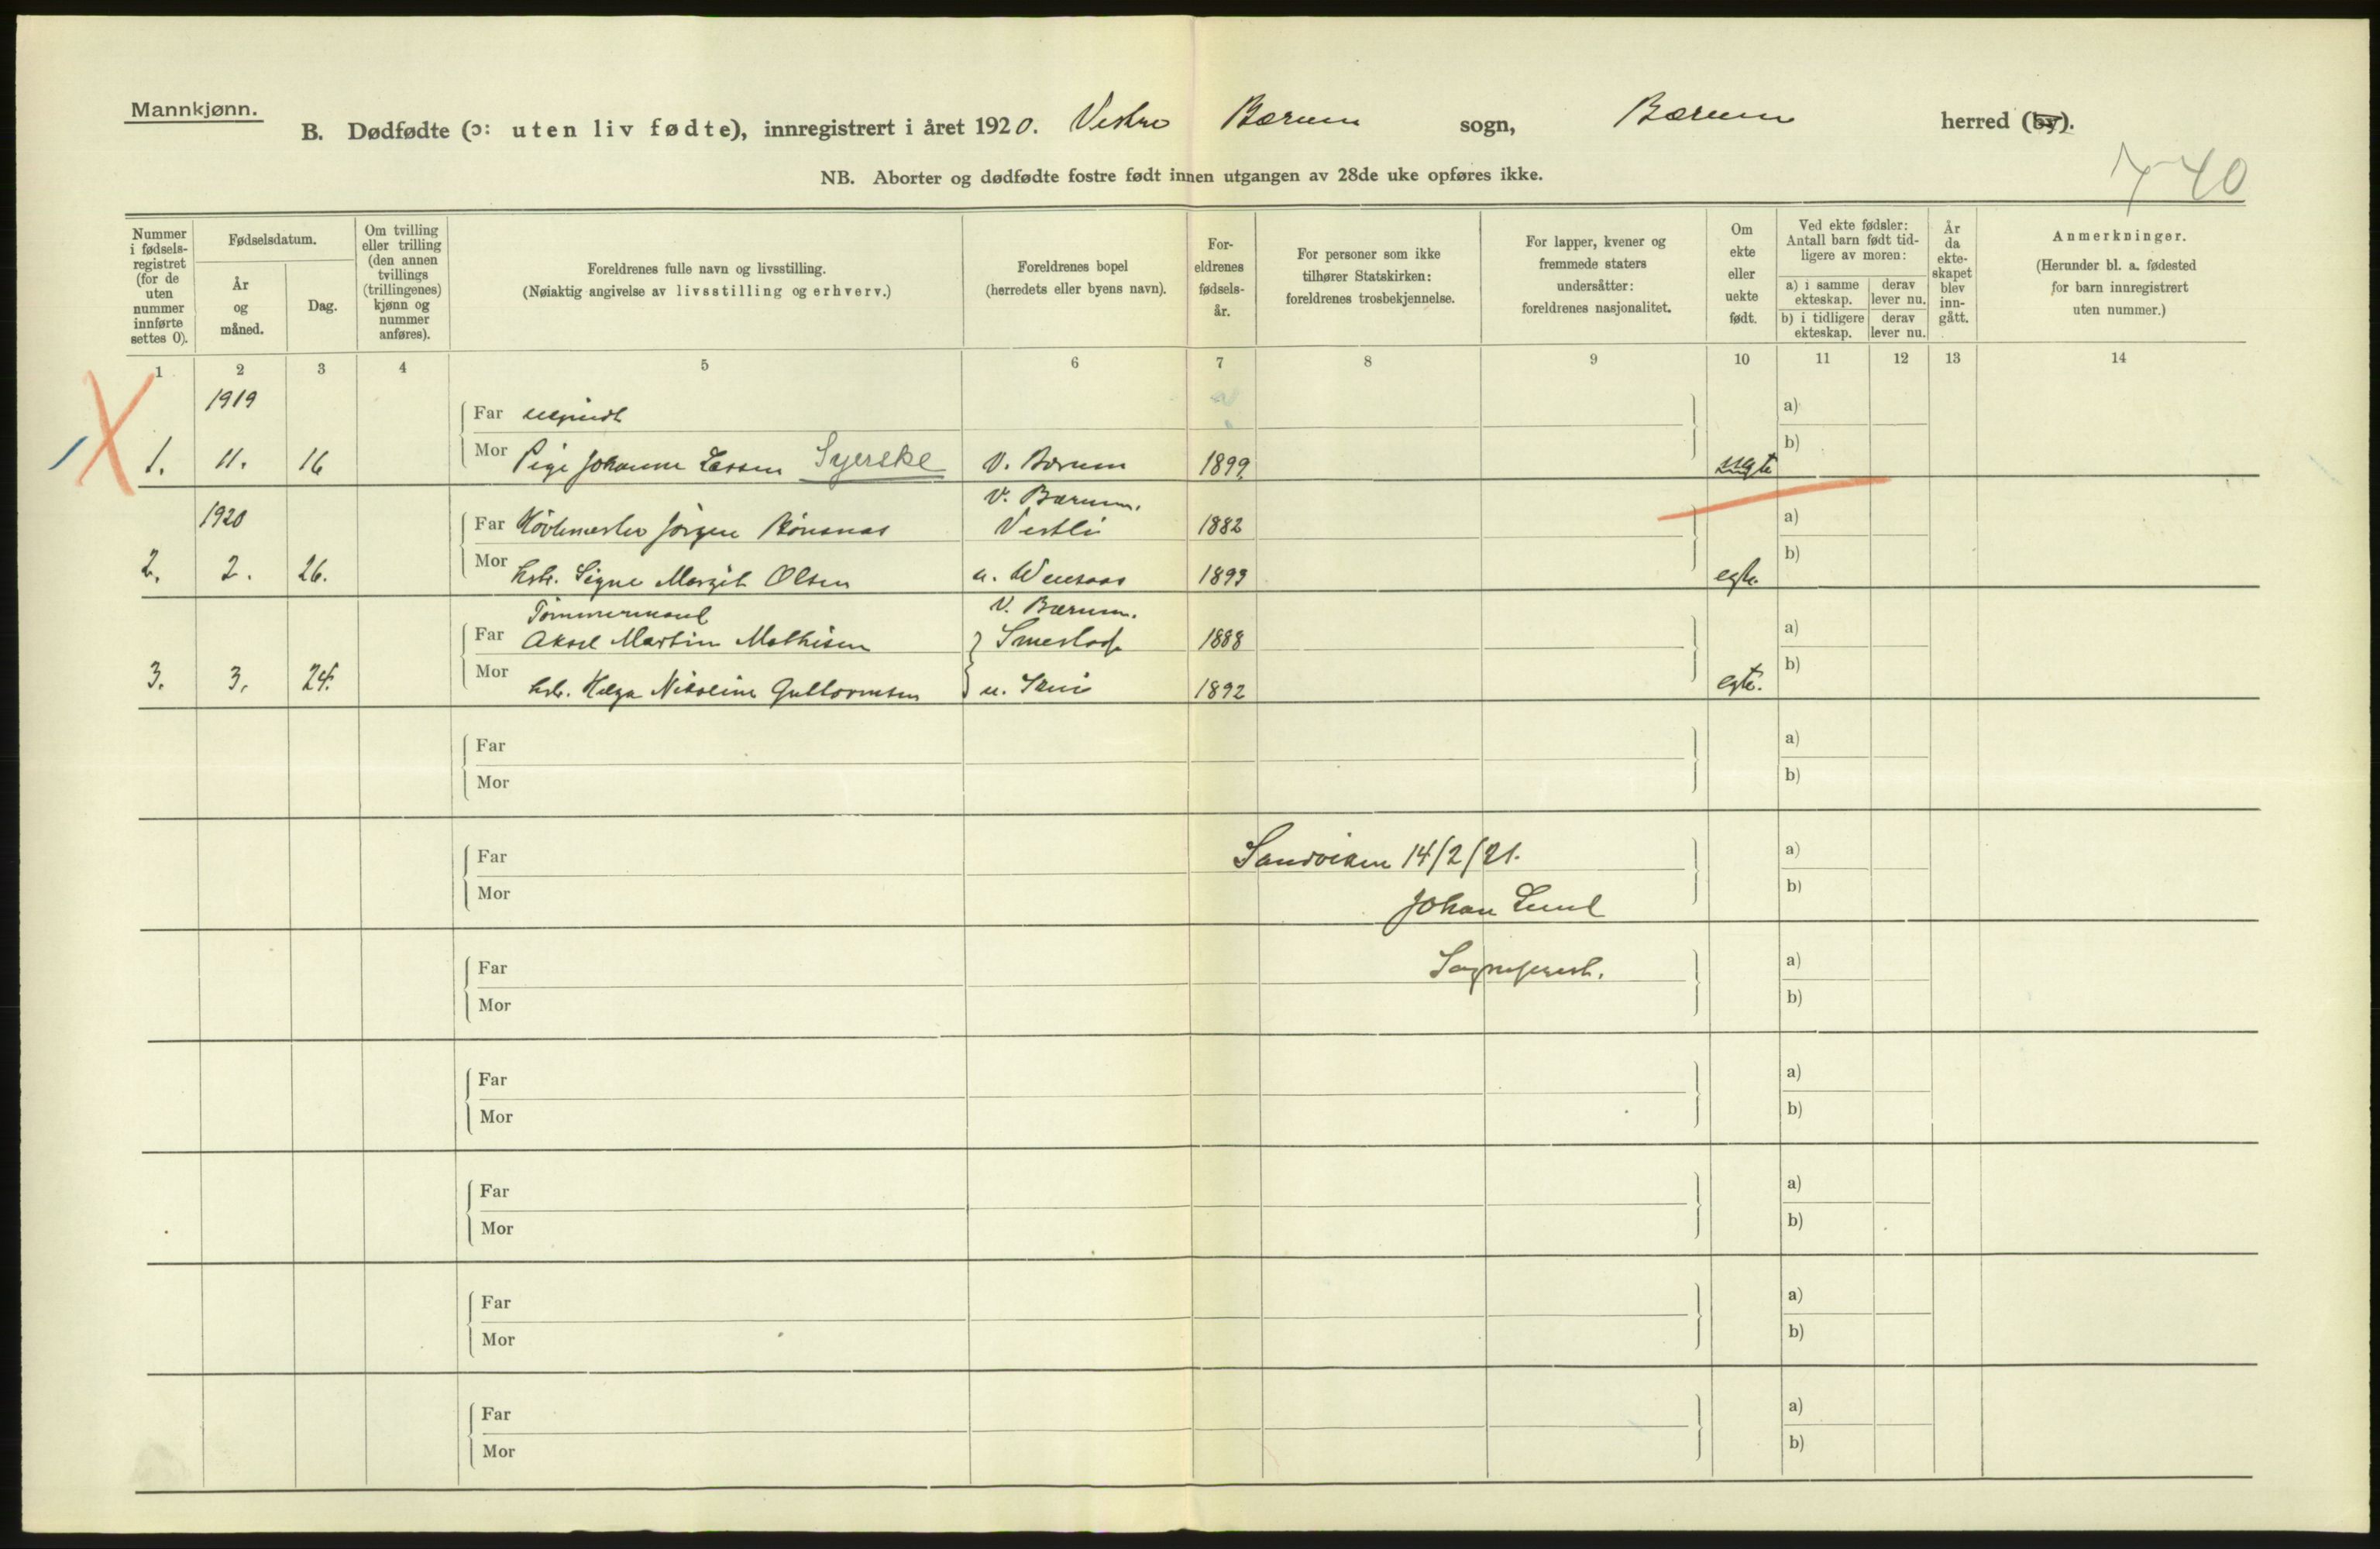 Mannkjønn.
B. Dødfødte (ɔ: uten liv fødte), innregistrert i året 1920. Vestre Bærum sogn, Bærum herred (by).
NB. Aborter og dødfødte fostre født innen utgangen av 28de uke opføres ikke.
740
Nummer i fødselsregistret (for de uten nummer innførte settes 0).
Fødselsdatum.
År og måned.
Dag.
Om tvilling eller trilling (den annen tvillings (trillingenes) kjønn og nummer anføres).
Foreldrenes fulle navn og livsstilling.
(Nøiaktig angivelse av livsstilling og erhverv.)
Foreldrenes bopel
(herredets eller byens navn).
Foreldrenes fødselsår.
For personer som ikke tilhører Statskirken: foreldrenes trosbekjennelse.
For lapper, kvener og fremmede staters undersåtter: foreldrenes nasjonalitet.
Om ekte eller uekte født.
Ved ekte fødsler: Antall barn født tidligere av moren:
a) i samme ekteskap. derav lever nu.
b) i tidligere ekteskap. derav lever nu.
År da ekteskapet blev inngått.
Anmerkninger.
(Herunder bl. a. fødested for barn innregistrert uten nummer.)
1 2 3 4 5 6 7 8 9 10 11 12 13 14
1919
Far a)
1. 11. 16 Mor Pige Johanne Syerske V. Bærum 1899 uegte b)
V. Bærum.
1920 Far Jørgen Vestli 1882 a)
2. 2. 26. Mor Signe Margit Olsen 1893 egte. b)
Tømmermand V. Bærum.
Far Aksel Martin Mathisen 1888 a)
3. 3. 24. Mor Helga Nikoline Guttormsen 1892 egte. b)
Far a)
Mor b)
Sandviken 14/2/21.
Far a)
Mor b)
Johan Lund
Far Sogneprest. a)
Mor b)
Far a)
Mor b)
Far a)
Mor b)
Far a)
Mor b)
Far a)
Mor b)